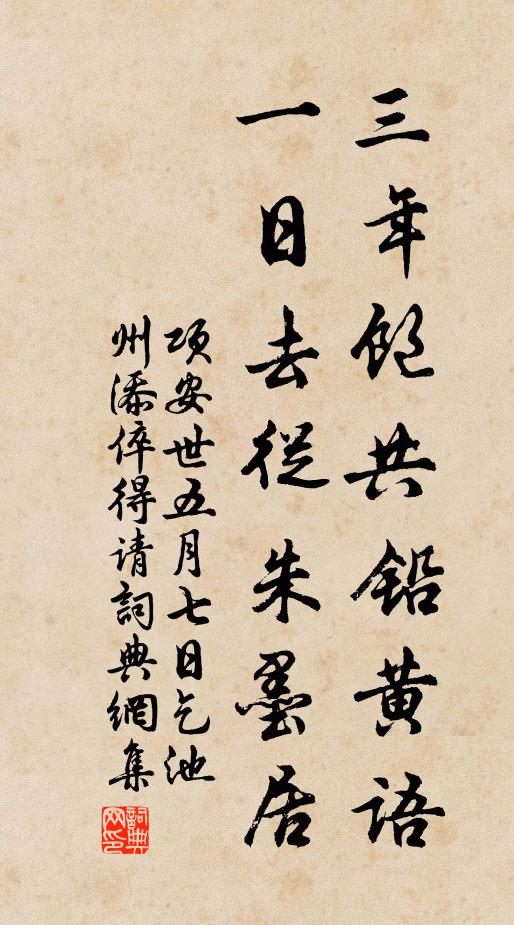 三年饱共铅黄语
一日去從朱墨居
项安世五月七日乞池
州添倅得请詞典網集
詞典网印